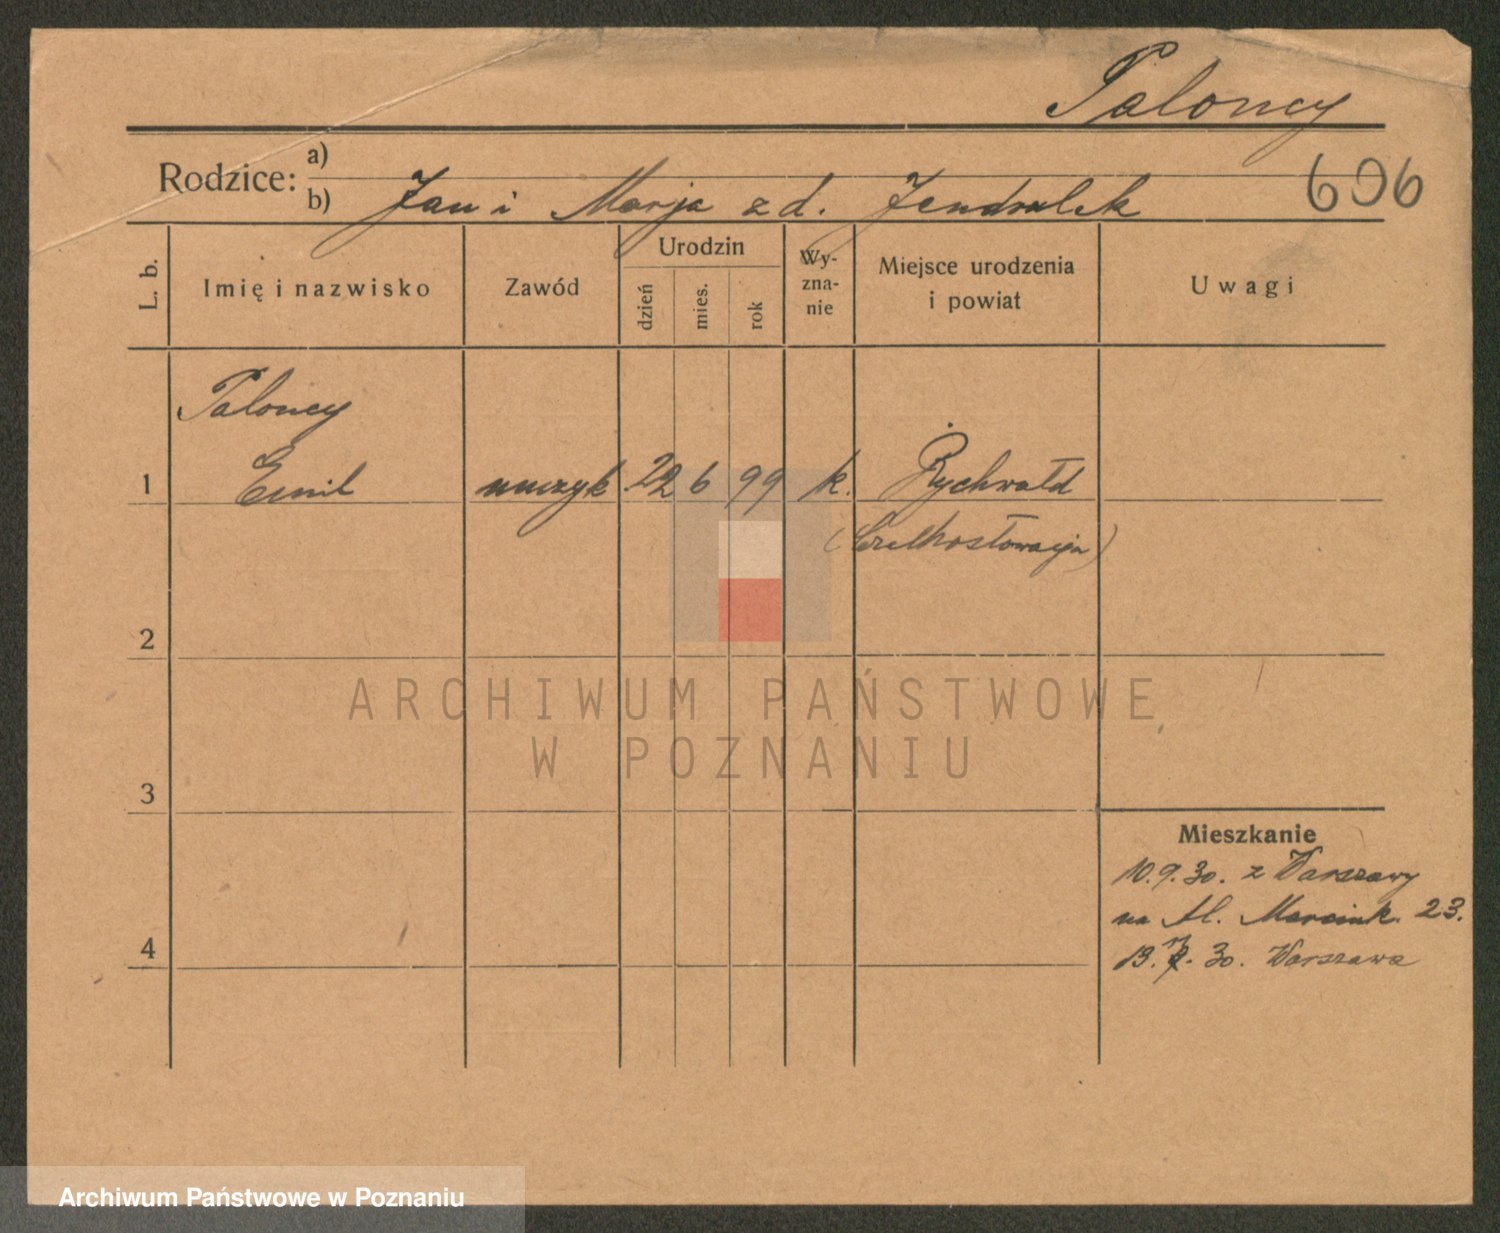 Paloncy
Rodzice: a)
b) Jan i Marja z d. Jendrulek
606
L. b.
Imię i nazwisko
Zawód
Urodzin
dzień
mies.
rok
Wy-
zna-
nie
Miejsce urodzenia
i powiat
Uwagi
Paloncy
1 Emil muzyk 22 6 99 k. Rychwałd
(Czechosłowacja)
2
3
4
Mieszkanie
10.9.30. z Warszawy
na Al. Marcink. 23.
30. Warszawa
ARCHIWUM PAŃSTWOWE
W POZNANIU
Archiwum Państwowe w Poznaniu